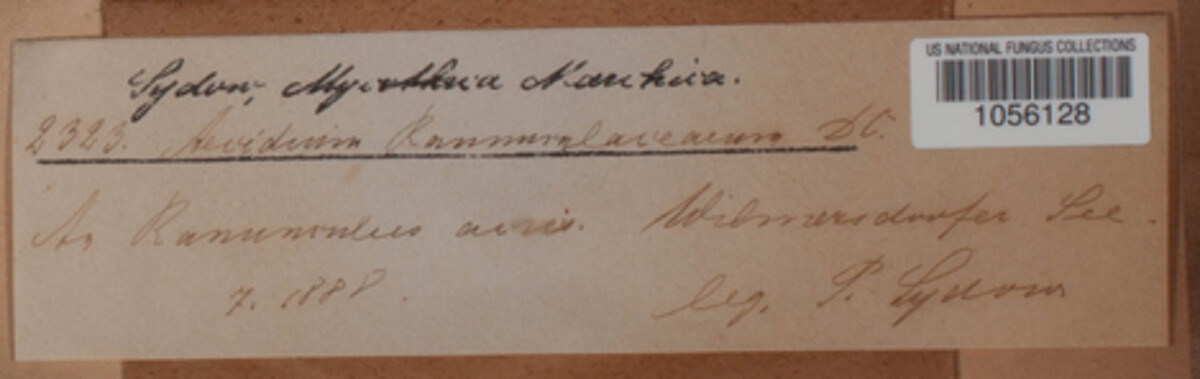 Sydow, Mycotheca Marchica.
US NATIONAL FUNGUS COLLECTIONS
1056128
2323. Aecidium Ranunculacearum DC.
An Ranunculus acris. Wilmersdorfer See.
7. 1888.
leg. P. Sydow